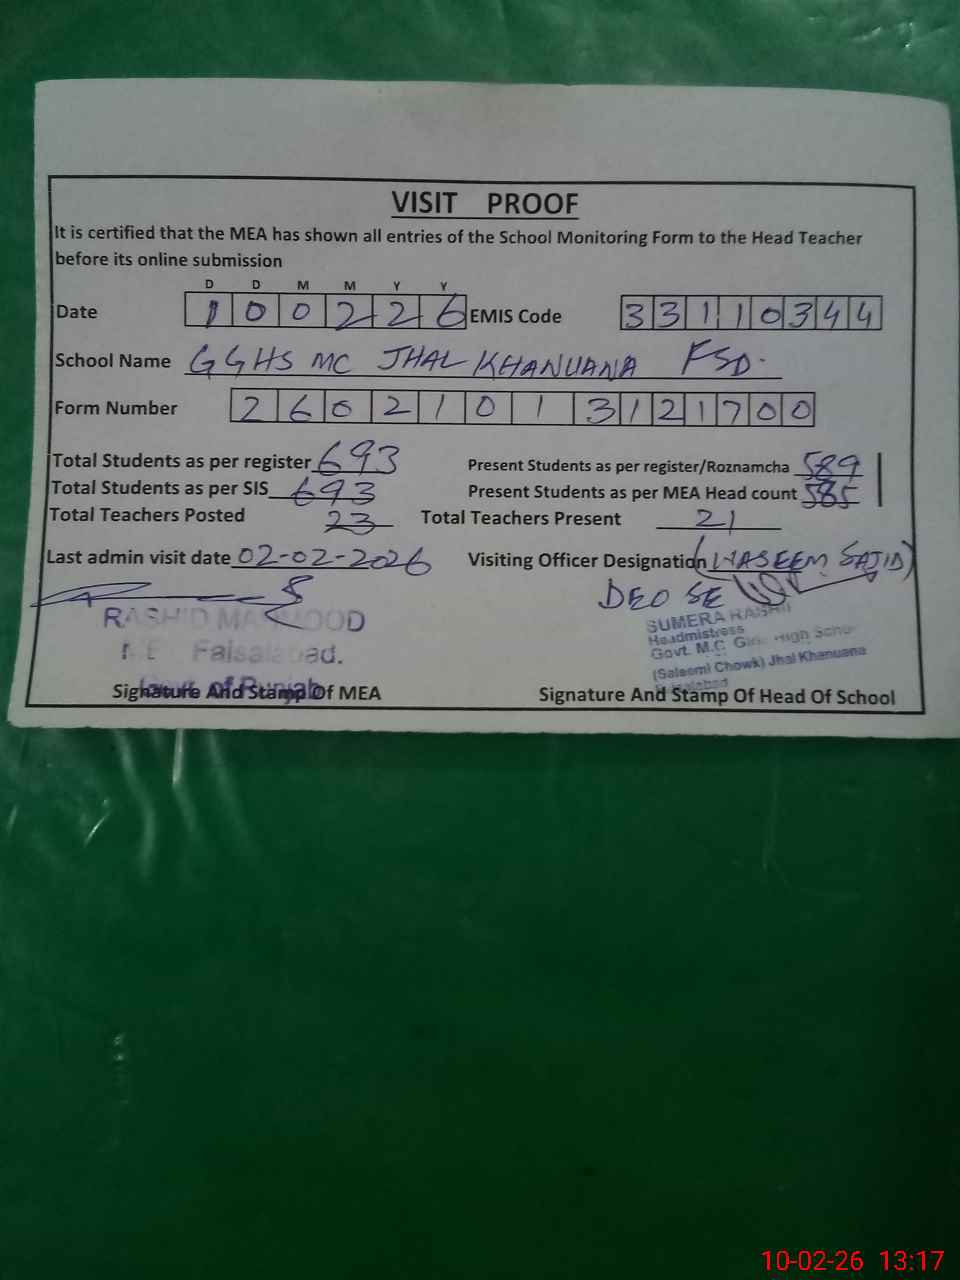 VISIT PROOF
It is certified that the MEA has shown all entries of the School Monitoring Form to the Head Teacher
before its online submission
D D M M Y Y
Date 1 0 0 2 2 6 EMIS Code 3 3 1 1 0 3 4 4
School Name GGHS MC JHAL KHANUANA FSD.
Form Number 2 6 0 2 1 0 1 3 1 2 1 7 0 0
Total Students as per register 693 Present Students as per register/Roznamcha 589
Total Students as per SIS 693 Present Students as per MEA Head count 585
Total Teachers Posted 23 Total Teachers Present 21
Last admin visit date 02-02-2026 Visiting Officer Designation (WASEEM SAJID)
DEO SE
RASHID MAHMOOD
Faisalabad.
Govt. of Punjab
SUMERA RASHID
Headmistress
Govt. M.C. Girls High School
(Saleemi Chowk) Jhal Khanuana
Faisalabad
Signature And Stamp Of MEA Signature And Stamp Of Head Of School
10-02-26 13:17